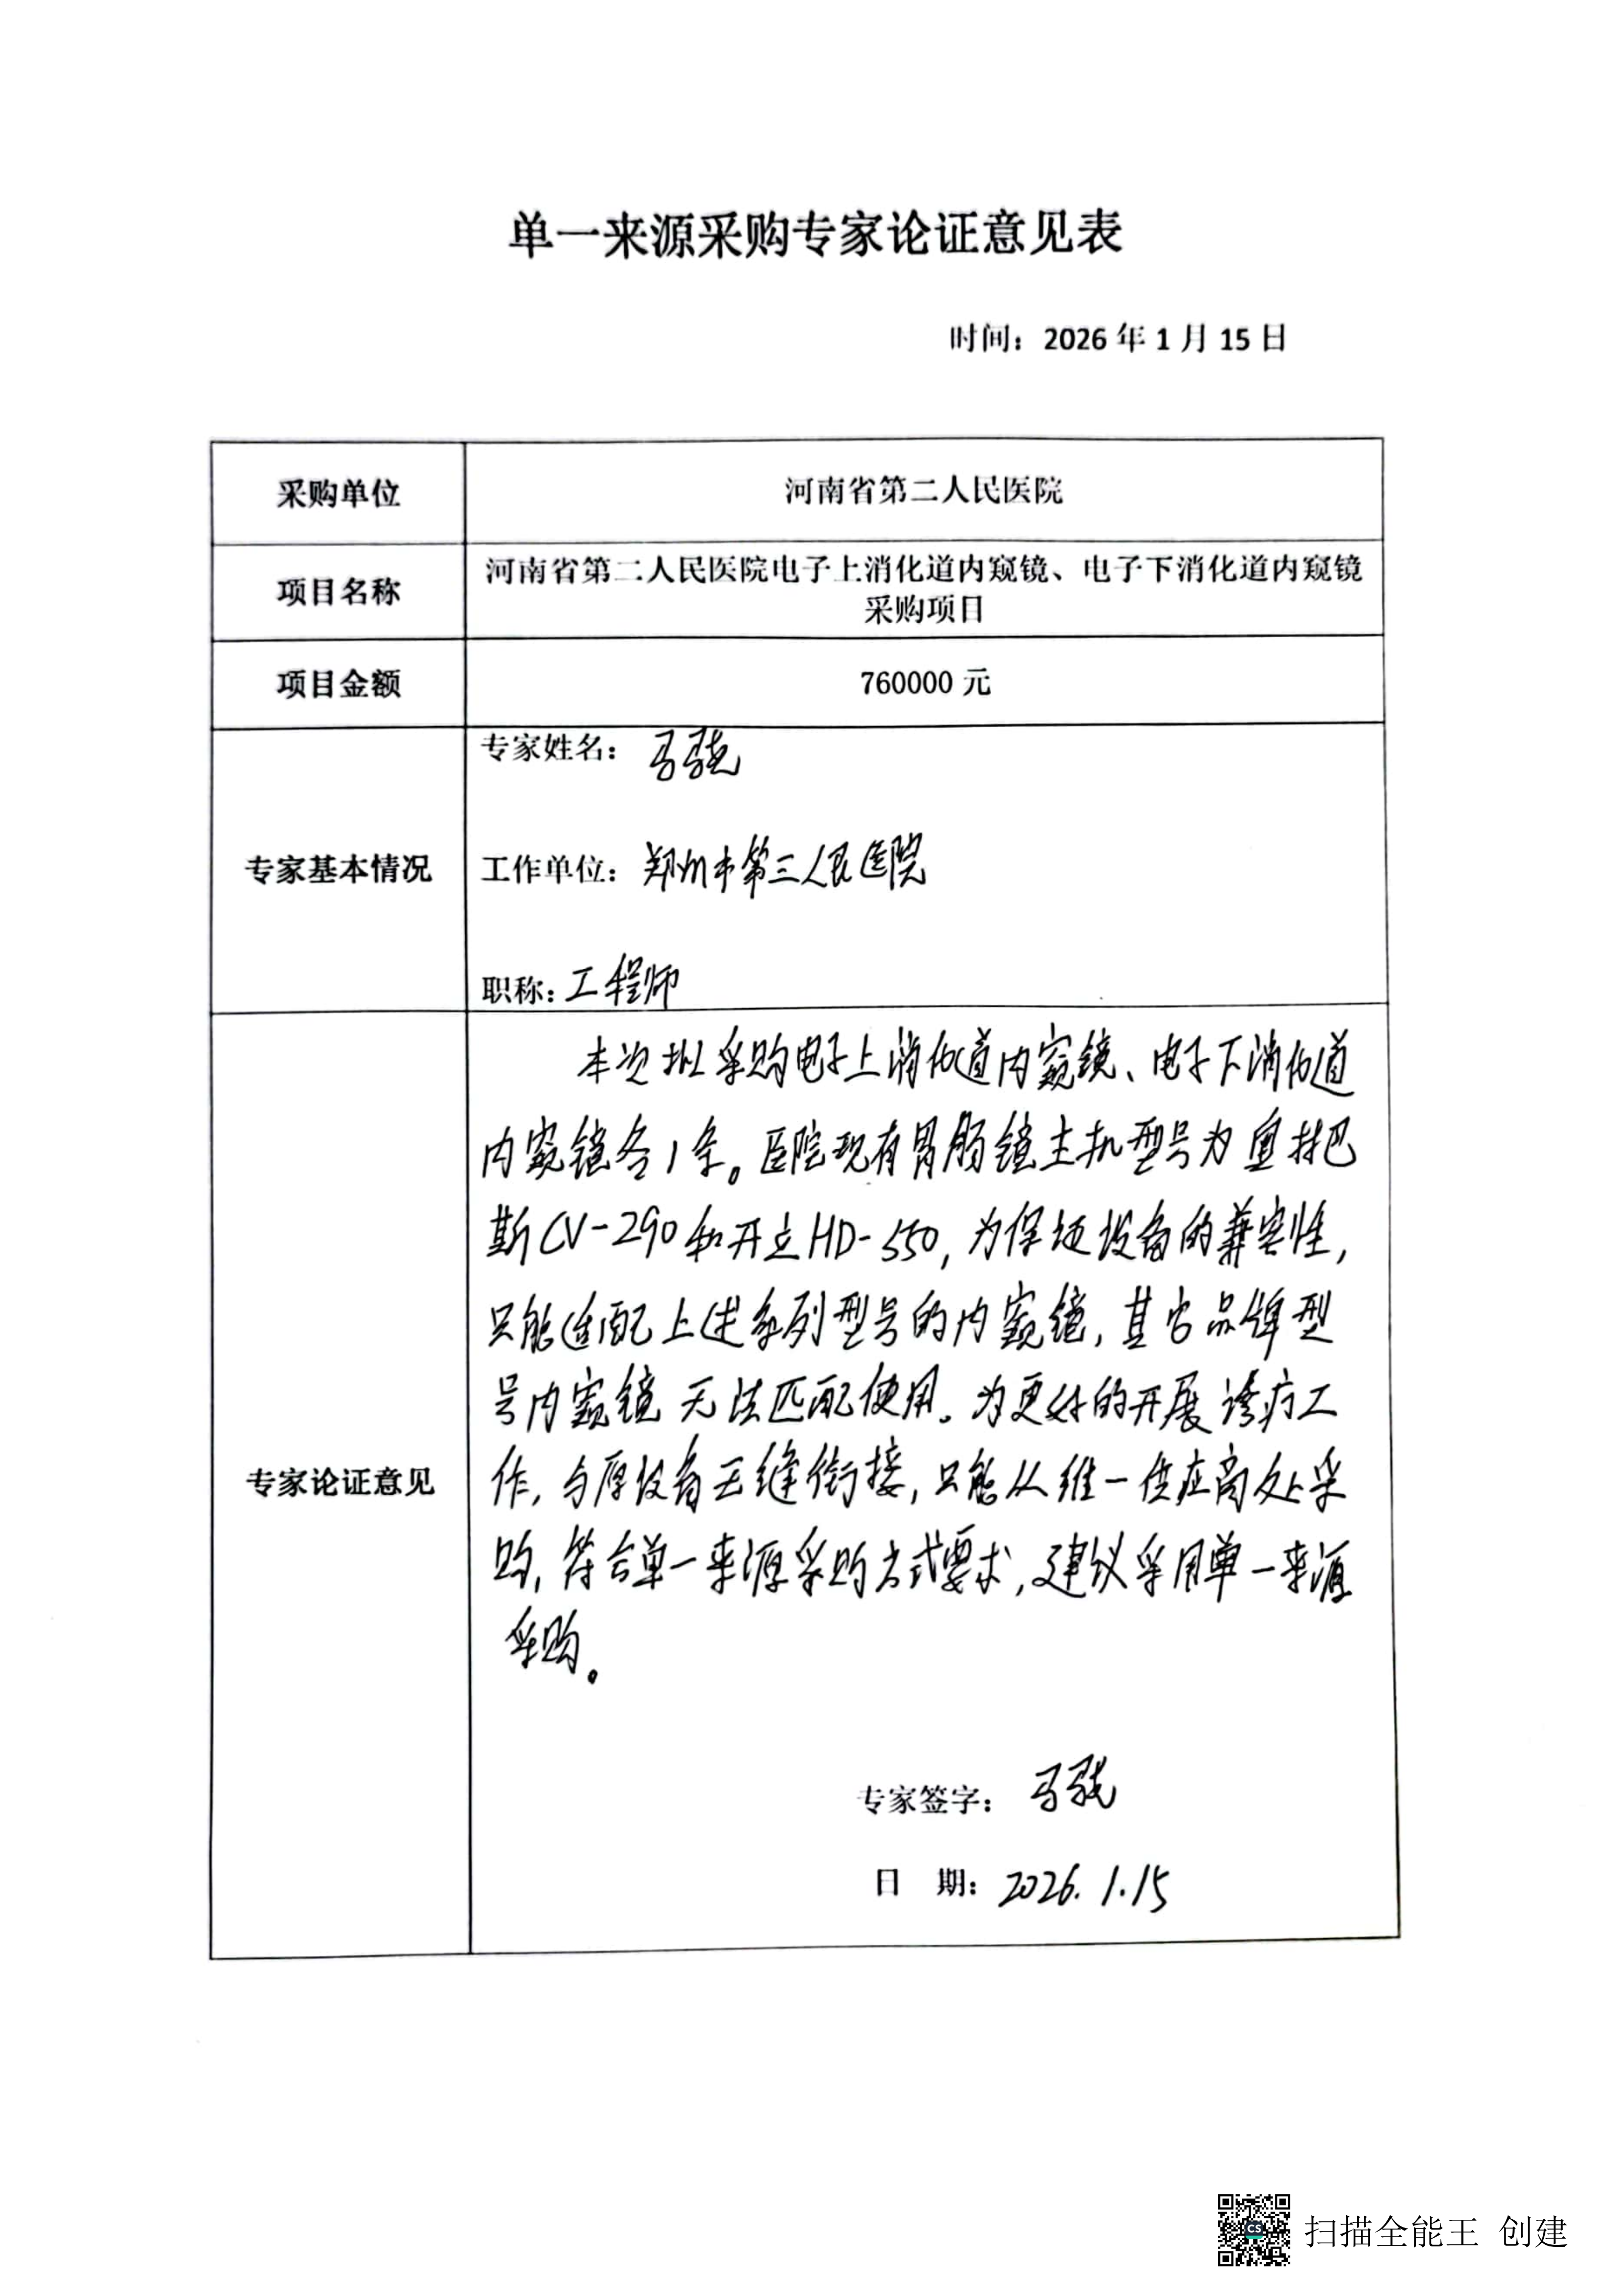 单一来源采购专家论证意见表
时间：2026年1月15日
采购单位
河南省第二人民医院
项目名称
河南省第二人民医院电子上消化道内窥镜、电子下消化道内窥镜
采购项目
项目金额
760000 元
专家基本情况
专家姓名：马骁
工作单位：郑州市第三人民医院
职称：工程师
专家论证意见
本次拟采购电子上消化道内窥镜、电子下消化道
内窥镜各1条。医院现有胃肠镜主机型号为奥林巴
斯CV-290和开立HD-550，为保证设备的兼容性，
只能适配上述系列型号的内窥镜，其它品牌型
号内窥镜无法匹配使用。为更好的开展诊疗工
作，与原设备无缝衔接，只能从维一供应商处采
购，符合单一来源采购方式要求，建议采用单一来源
采购。
专家签字：马骁
日 期：2026.1.15
扫描全能王 创建